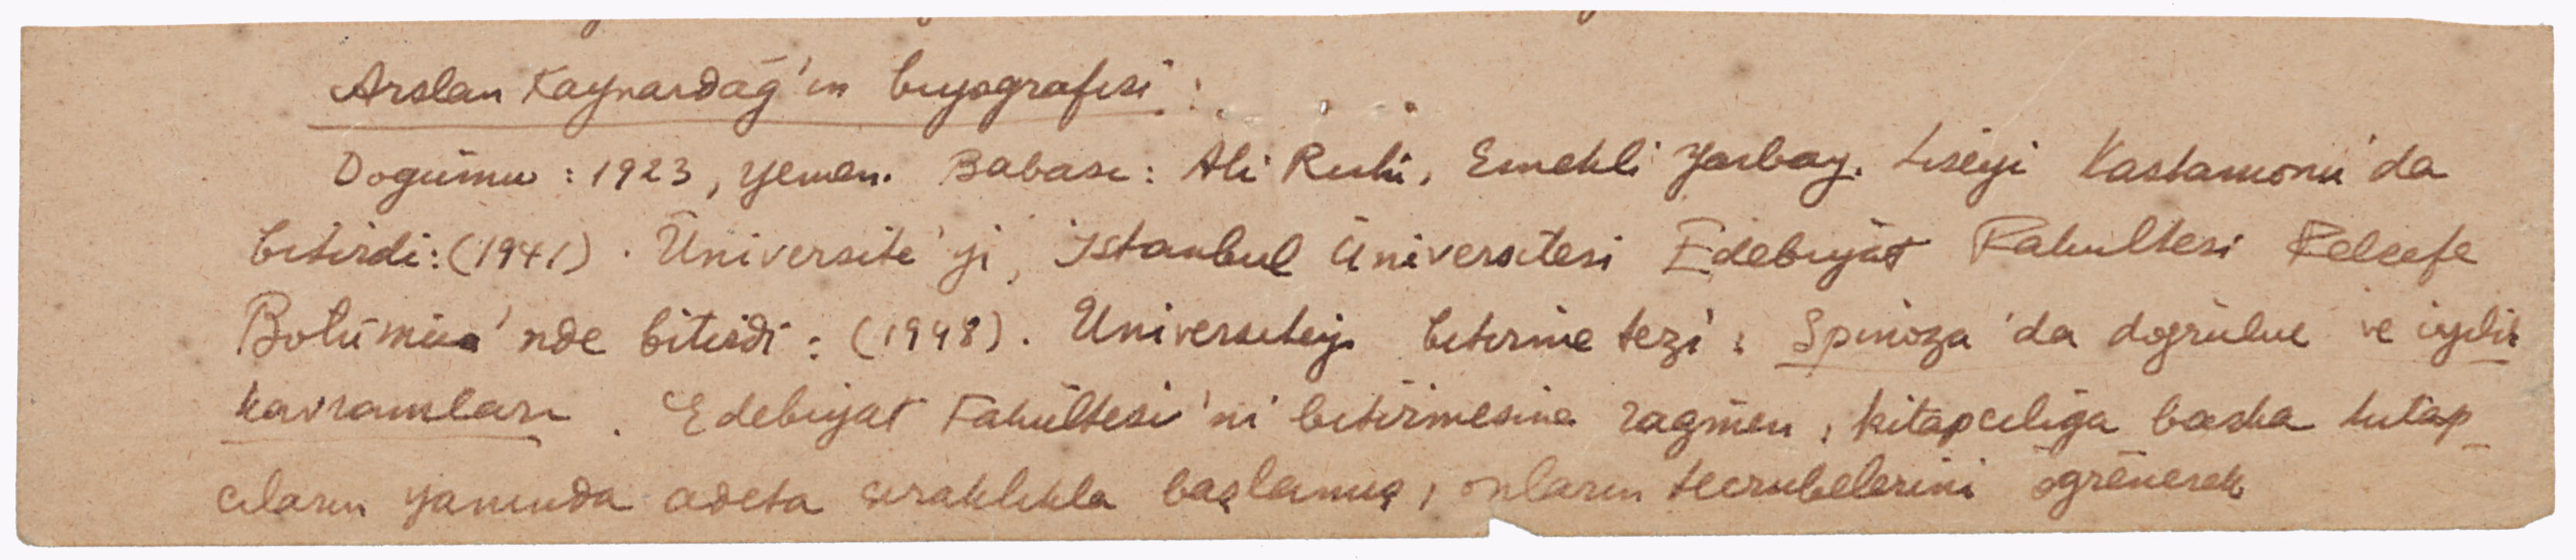 Arslan Kaynardağ'ın biyografisi :
Doğumu : 1923, Yemen. Babası : Ali Ruhi, Emekli Yarbay. Liseyi Kastamonu'da
bitirdi : (1941). Üniversite'yi, İstanbul Üniversitesi Edebiyat Fakültesi Felsefe
Bölümü'nde bitirdi : (1948). Üniversiteyi bitirme tezi : Spinoza'da doğruluk ve iyilik
kavramları. Edebiyat Fakültesi'ni bitirmesine rağmen, kitapçılığa başka kitap_
cıların yanında adeta çıraklıkla başlamış, onların tecrubelerini öğrenerek